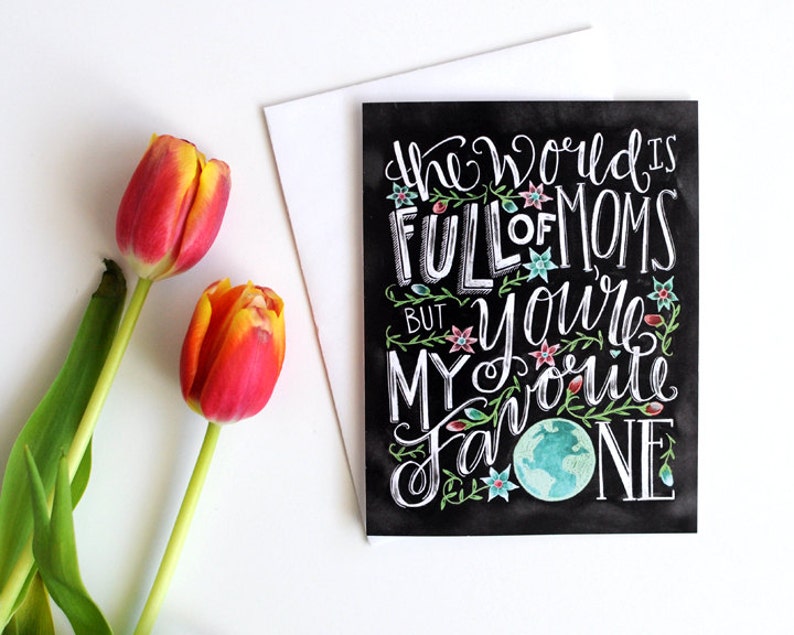 the World IS
FULL OF MOMS
BUT you're
MY Favorite
ONE